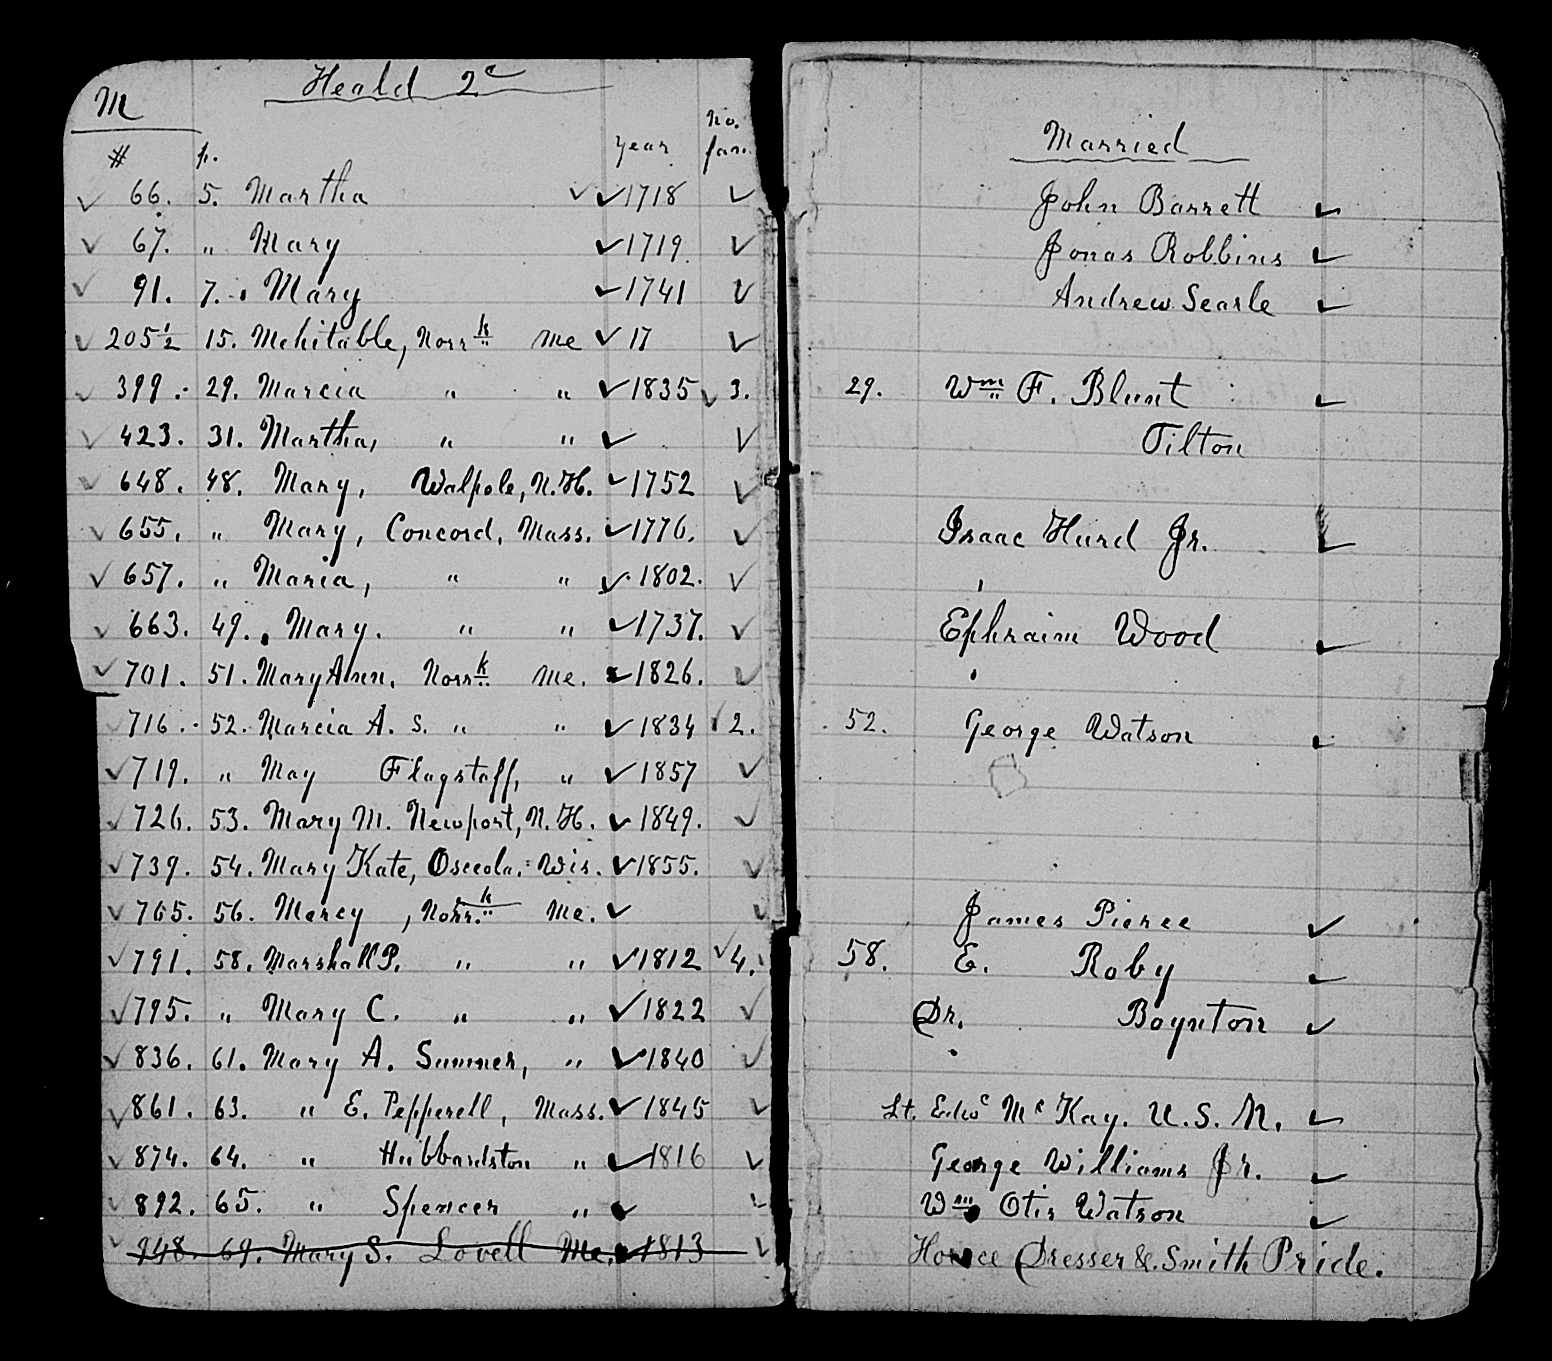 Heald 2ᶜ
M
# p. year No. fam.
66. 5. Martha 1718
67. " Mary 1719.
91. 7. Mary 1741
205½ 15. Mehitable, Norrᵏ Me 17
399. 29. Marcia " " 1835 3.
423. 31. Martha, " "
648. 48. Mary, Walpole, N.H. 1752
655. " Mary, Concord, Mass. 1776.
657. " Maria, " " 1802.
663. 49. Mary. " " 1737.
701. 51. Mary Ann. Norrᵏ Me. 1826.
716. 52. Marcia A. S. " " 1834 2.
719. " May Flagstaff, " 1857
726. 53. Mary M. Newport, N.H. 1849.
739. 54. Mary Kate, Osceola. Wis. 1855.
765. 56. Mercy, Norr.ᵏ Me.
791. 58. Marshall P. " " 1812 4.
795. " Mary C. " " 1822
836. 61. Mary A. Sumner, " 1840
861. 63. " E. Pepperell, Mass. 1845
874. 64. " Hubbardston " 1816
892. 65. " Spencer "
948. 69. Mary S. Lovell Me. 1813
Married
John Barrett
Jonas Robbins
Andrew Searle
29. Wᵐ F. Blunt
Tilton
Isaac Hurd Jr.
Ephraim Wood
52. George Watson
James Pierce
58. E. Roby
Dr. Boynton
Lt. Edwᶜ McKay. U.S.N.
George Williams Jr.
Wᵐ Otis Watson
Horace Dresser & Smith Pride.